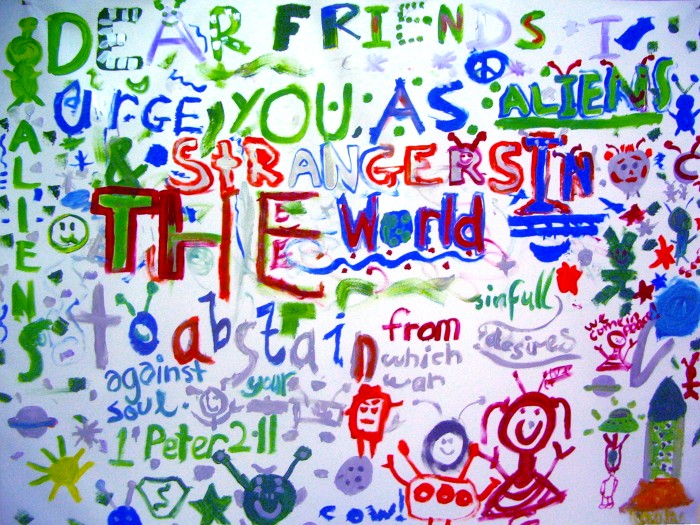 DEAR FRIENDS I
Urge, YOU AS ALIENS
& StRANGERS IN
THE World
to abstain from sinfull desires
which war
against your
soul.
1 Peter 2:11
ALIENS
cow!
we come in